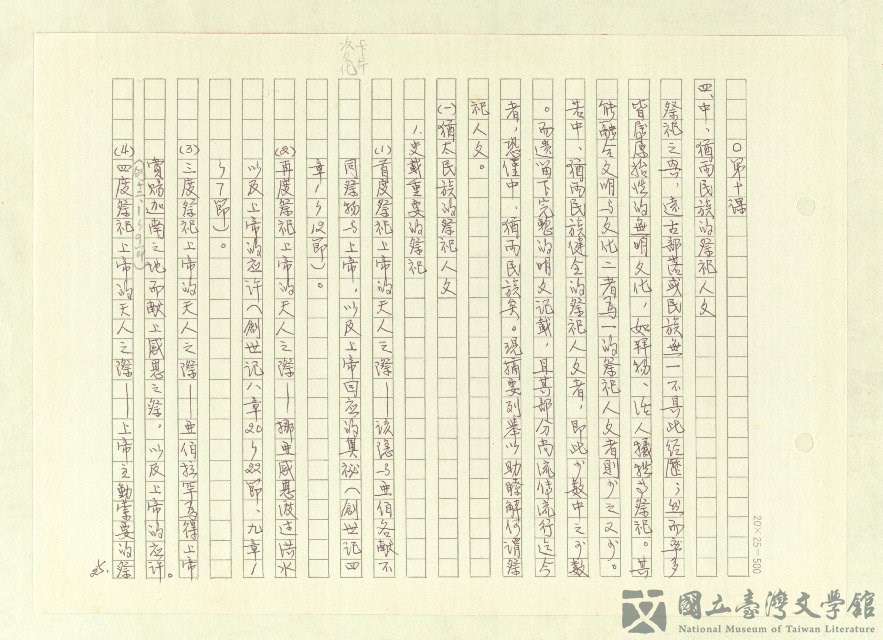 ○第十課
四、中、猶兩民族的祭祀人文
祭祀之舉，遠古部落或民族無一不具此經歷；然而率多
皆屬原始性的無明文化，如拜物、活人犧牲等祭祀。其
能融合文明与文化二者為一的祭祀人文者則少之又少。
若中、猶兩民族健全的祭祀人文者，即此少數中之少數
。而遺留下完整的明文記載，且其部分尚流傳流行迄今
者，恐僅中、猶兩民族矣。現摘要列舉以助瞭解何謂祭
祀人文。
㈠猶太民族的祭祀人文
1.史載重要的祭祀
(1)首度祭祀上帝的天人之際——該隱与亞伯各獻不
同祭物与上帝，以及上帝回應的奧祕（創世記四
章1〜12節）。
(2)再度祭祀上帝的天人之際——挪亞感恩渡過洪水
以及上帝的应许（創世記八章20〜22節、九章1
〜17節）。
(3)三度祭祀上帝的天人之際——亞伯拉罕為得上帝
賞賜迦南之地而獻上感恩之祭，以及上帝的应许。
(4)四度祭祀上帝的天人之際——上帝主動索要的祭
25.
20×25=500
國立臺灣文學館
National Museum of Taiwan Literature